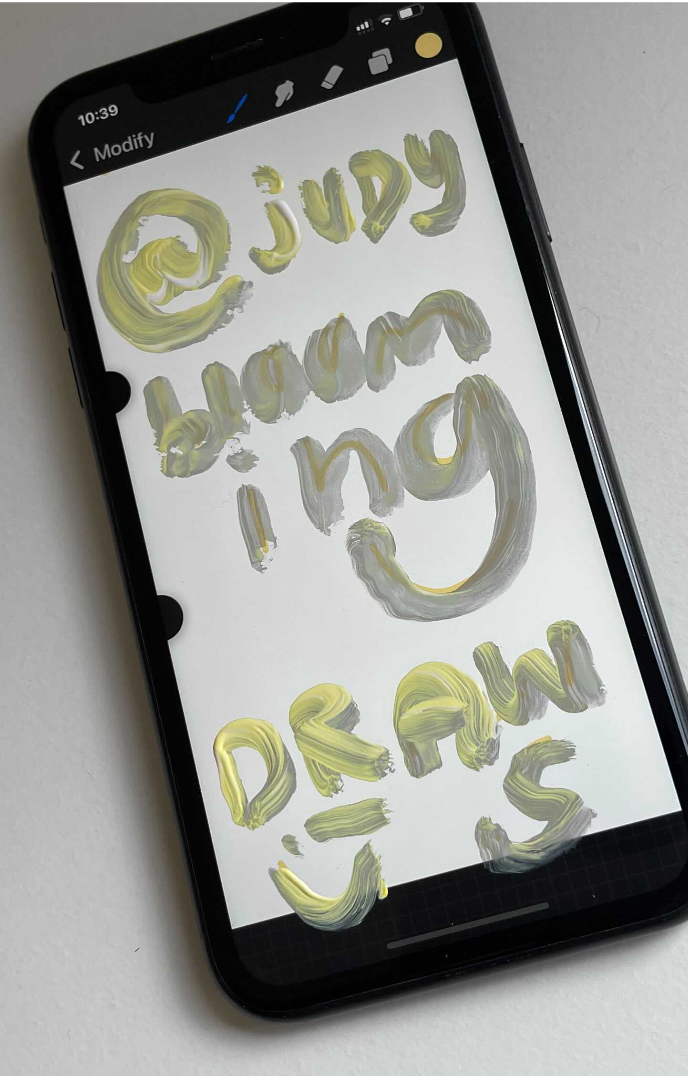 10:39
Modify
@judy
bloom
ing
DRAW
S